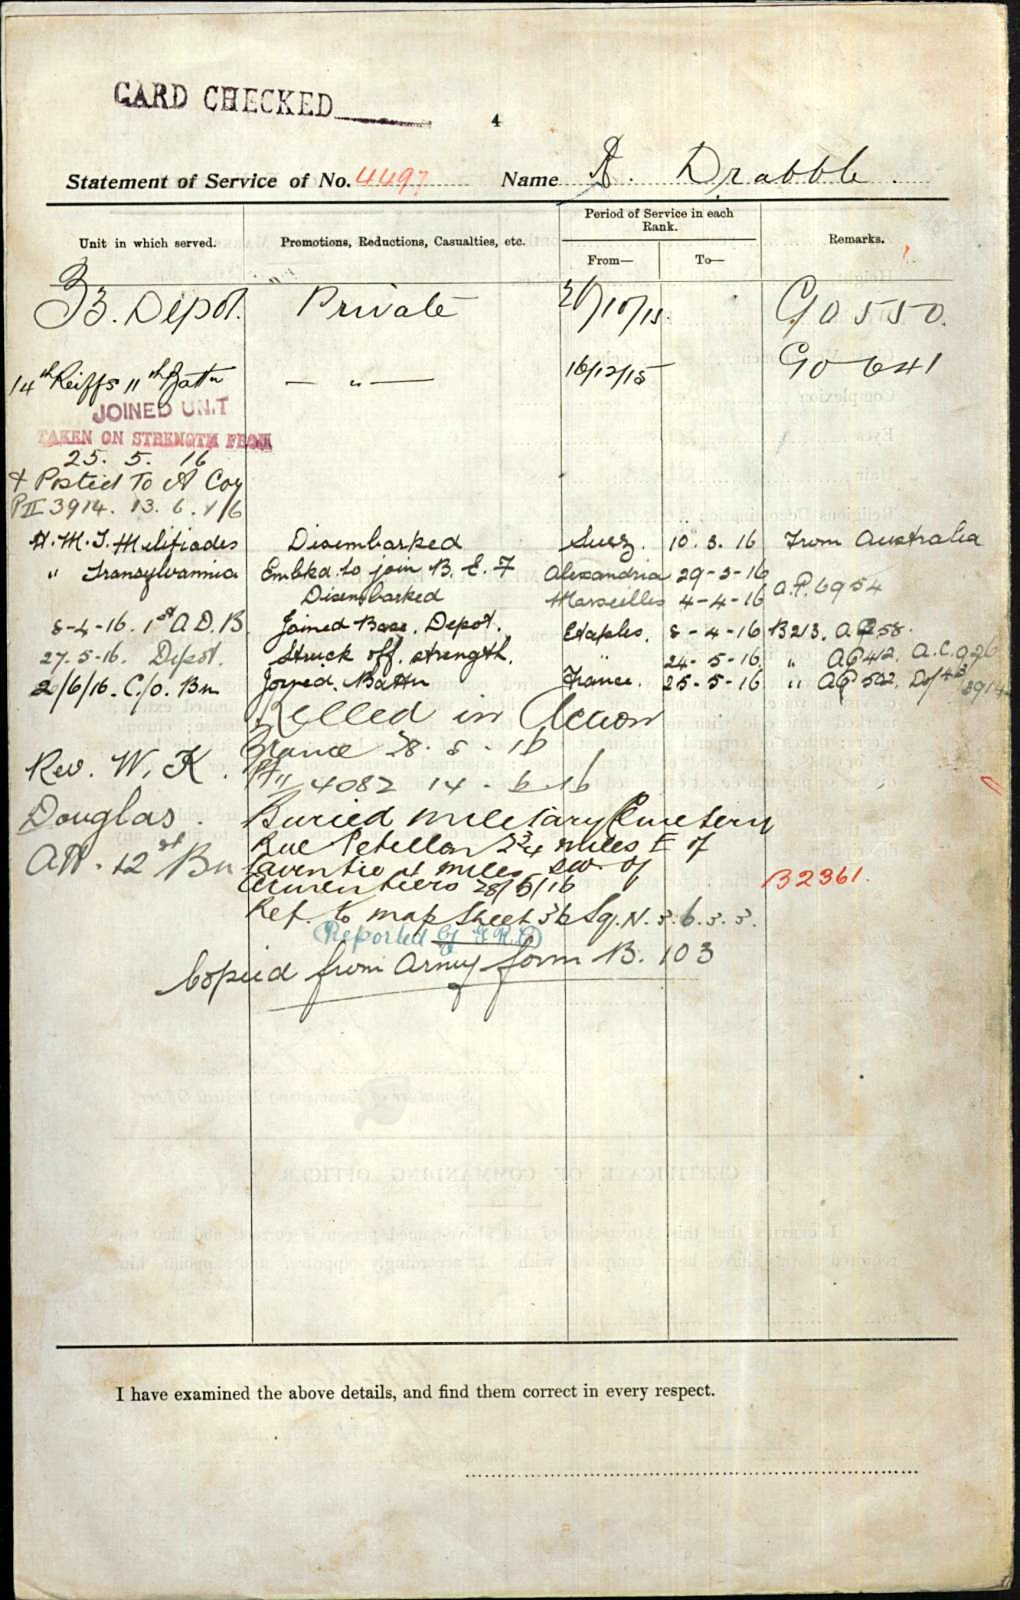 CARD CHECKED
4
Statement of Service of No. 4497 Name A. Drabble.
Unit in which served. Promotions, Reductions, Casualties, etc. Period of Service in each Rank. Remarks.
From— To—
B3. Depot. Private 26/10/15. GO 550.
14th Reiffs 11th Battn — " — 16/12/15 GO 641
JOINED UNIT
TAKEN ON STRENGTH FROM
25. 5. 16
& Posted To A Coy
PII 3914. 13. 6. 16
H.M.T. Miltiades Disembarked Suez. 10. 3. 16 From Australia
" Transylvannia Embkd. to join B. E. F Alexandria 29-3-16
Disembarked Marseilles 4-4-16 A.P. 6954
8-4-16. 1st A D. B Joined Base. Depot. Etaples. 8-4-16 B213. 58.
27.5-16. Depot. Struck off. strength. " 24-5-16 " 412. A.C. 926
2/6/16. C/o. Bn Joined. Battn France. 25-5-16 " 502. 3914
Killed in Action
France 28. 5. 16
PII 4082 14. 6. 16
Rev. W. K.
Douglas.
Att. 42nd Bn
Buried Military Cemetery
Rue Petillon 3 3/4 miles E of
Laventie 4 miles SW of
Armentiers 28/5/16
B2361.
Ref. to map Sheet 36 Sq. N. 3. 6. 3. 3.
(Reported by G.R.U)
Copied from Army form B. 103
I have examined the above details, and find them correct in every respect.